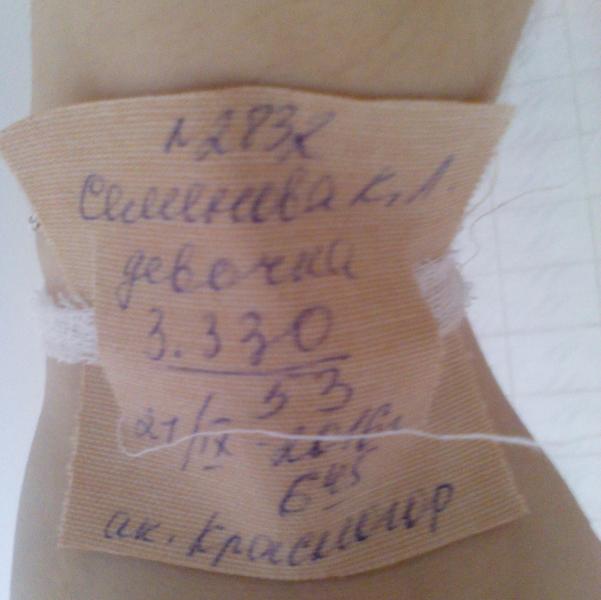 №2832
Семенова К. Л.
девочка
3.330
53
21/IX - 2016г
6 45
ак. Красницр